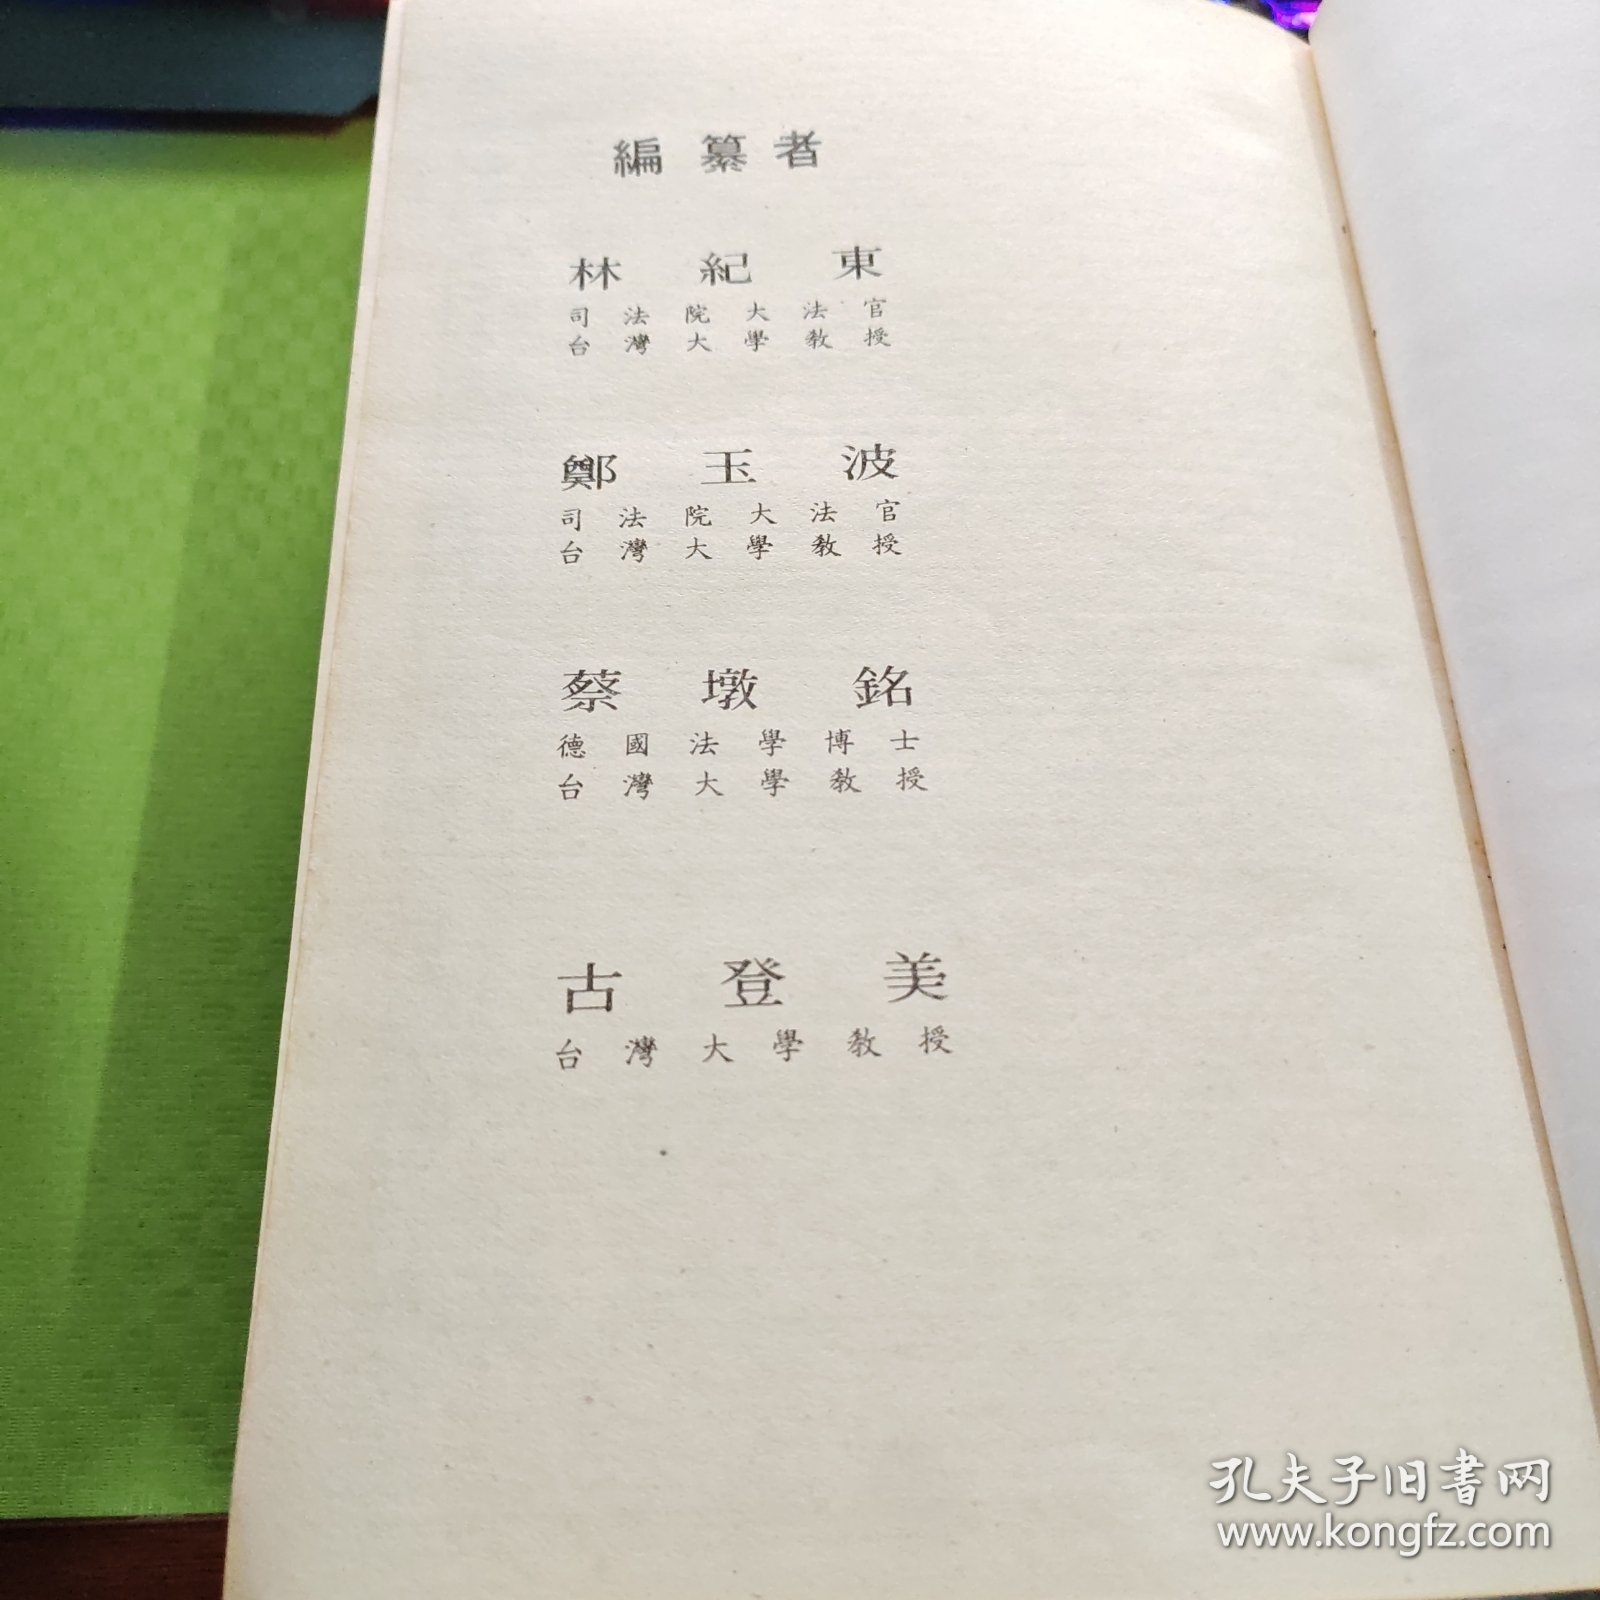 編纂者
林紀東
司法院大法官
台灣大學教授
鄭玉波
司法院大法官
台灣大學教授
蔡墩銘
德國法學博士
台灣大學教授
古登美
台灣大學教授
孔夫子旧书网
www.kongfz.com